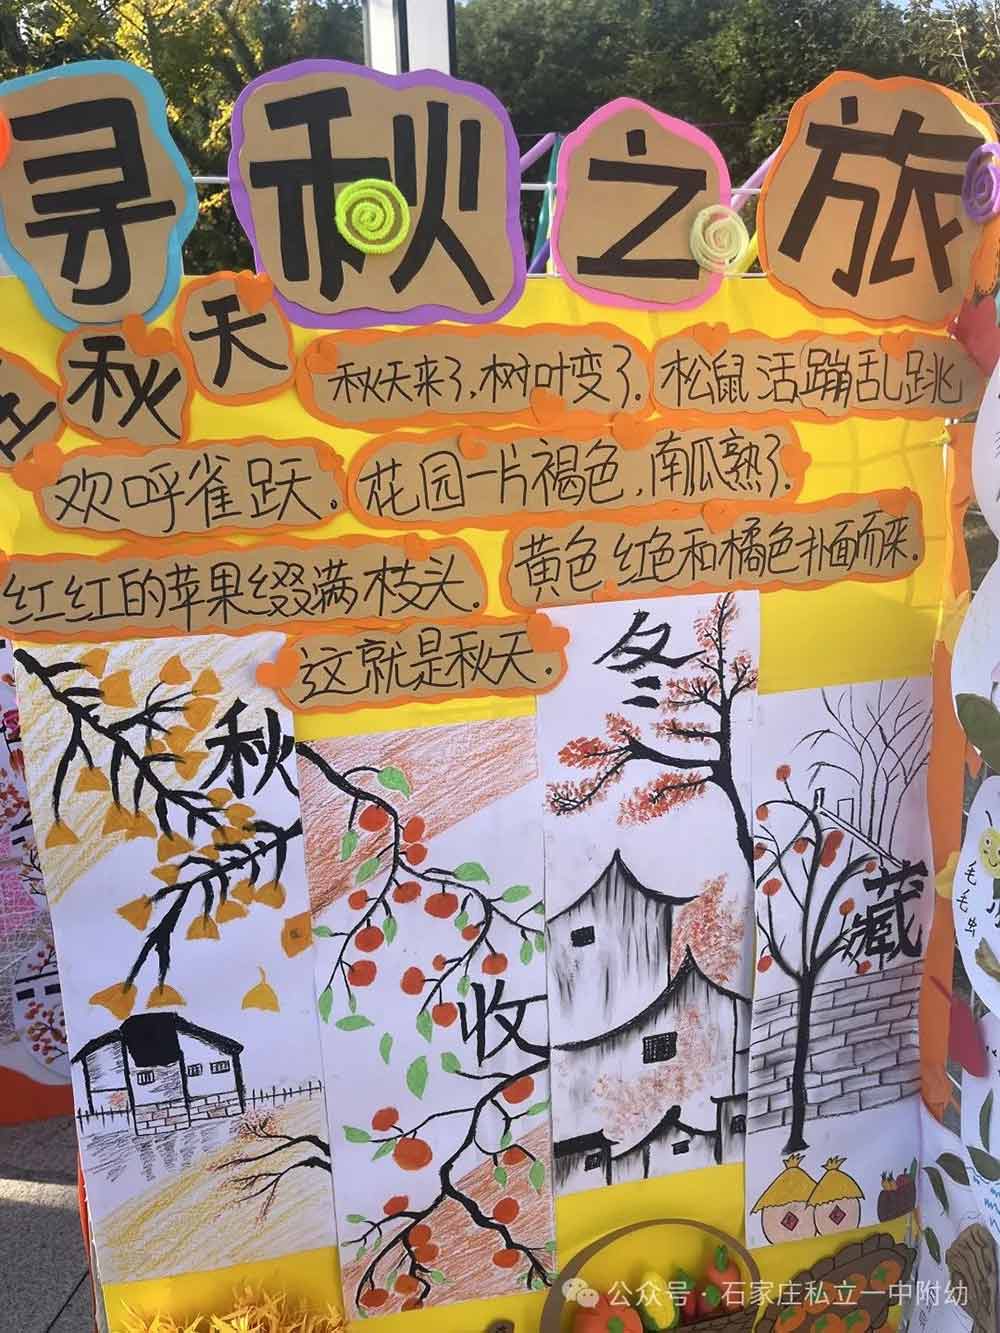 寻秋之旅
秋天
秋天来了,树叶变了.
松鼠活蹦乱跳
欢呼雀跃.
花园一片褐色,南瓜熟了.
红红的苹果缀满枝头.
黄色红色和橘色扑面而来.
这就是秋天.
秋
收
冬
藏
毛毛虫
公众号·石家庄私立一中附幼